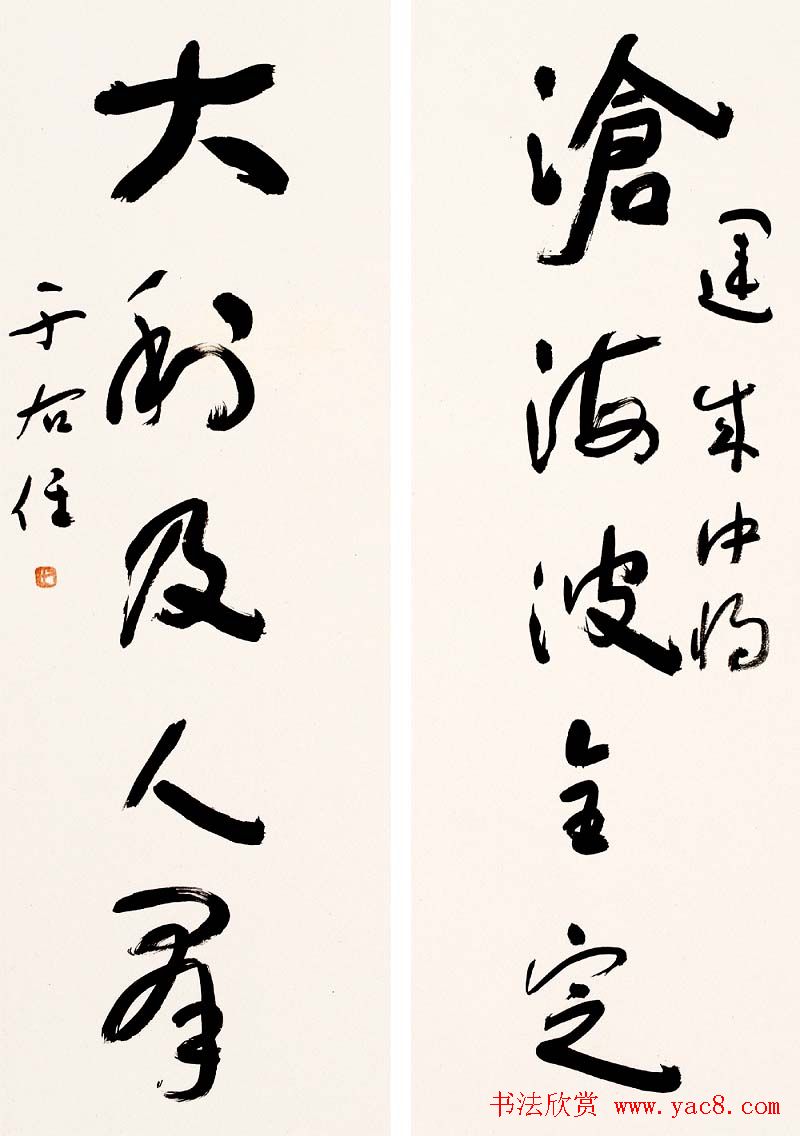 滄海波全定
運成中將
大利及人羣
于右任
书法欣赏 www.yac8.com